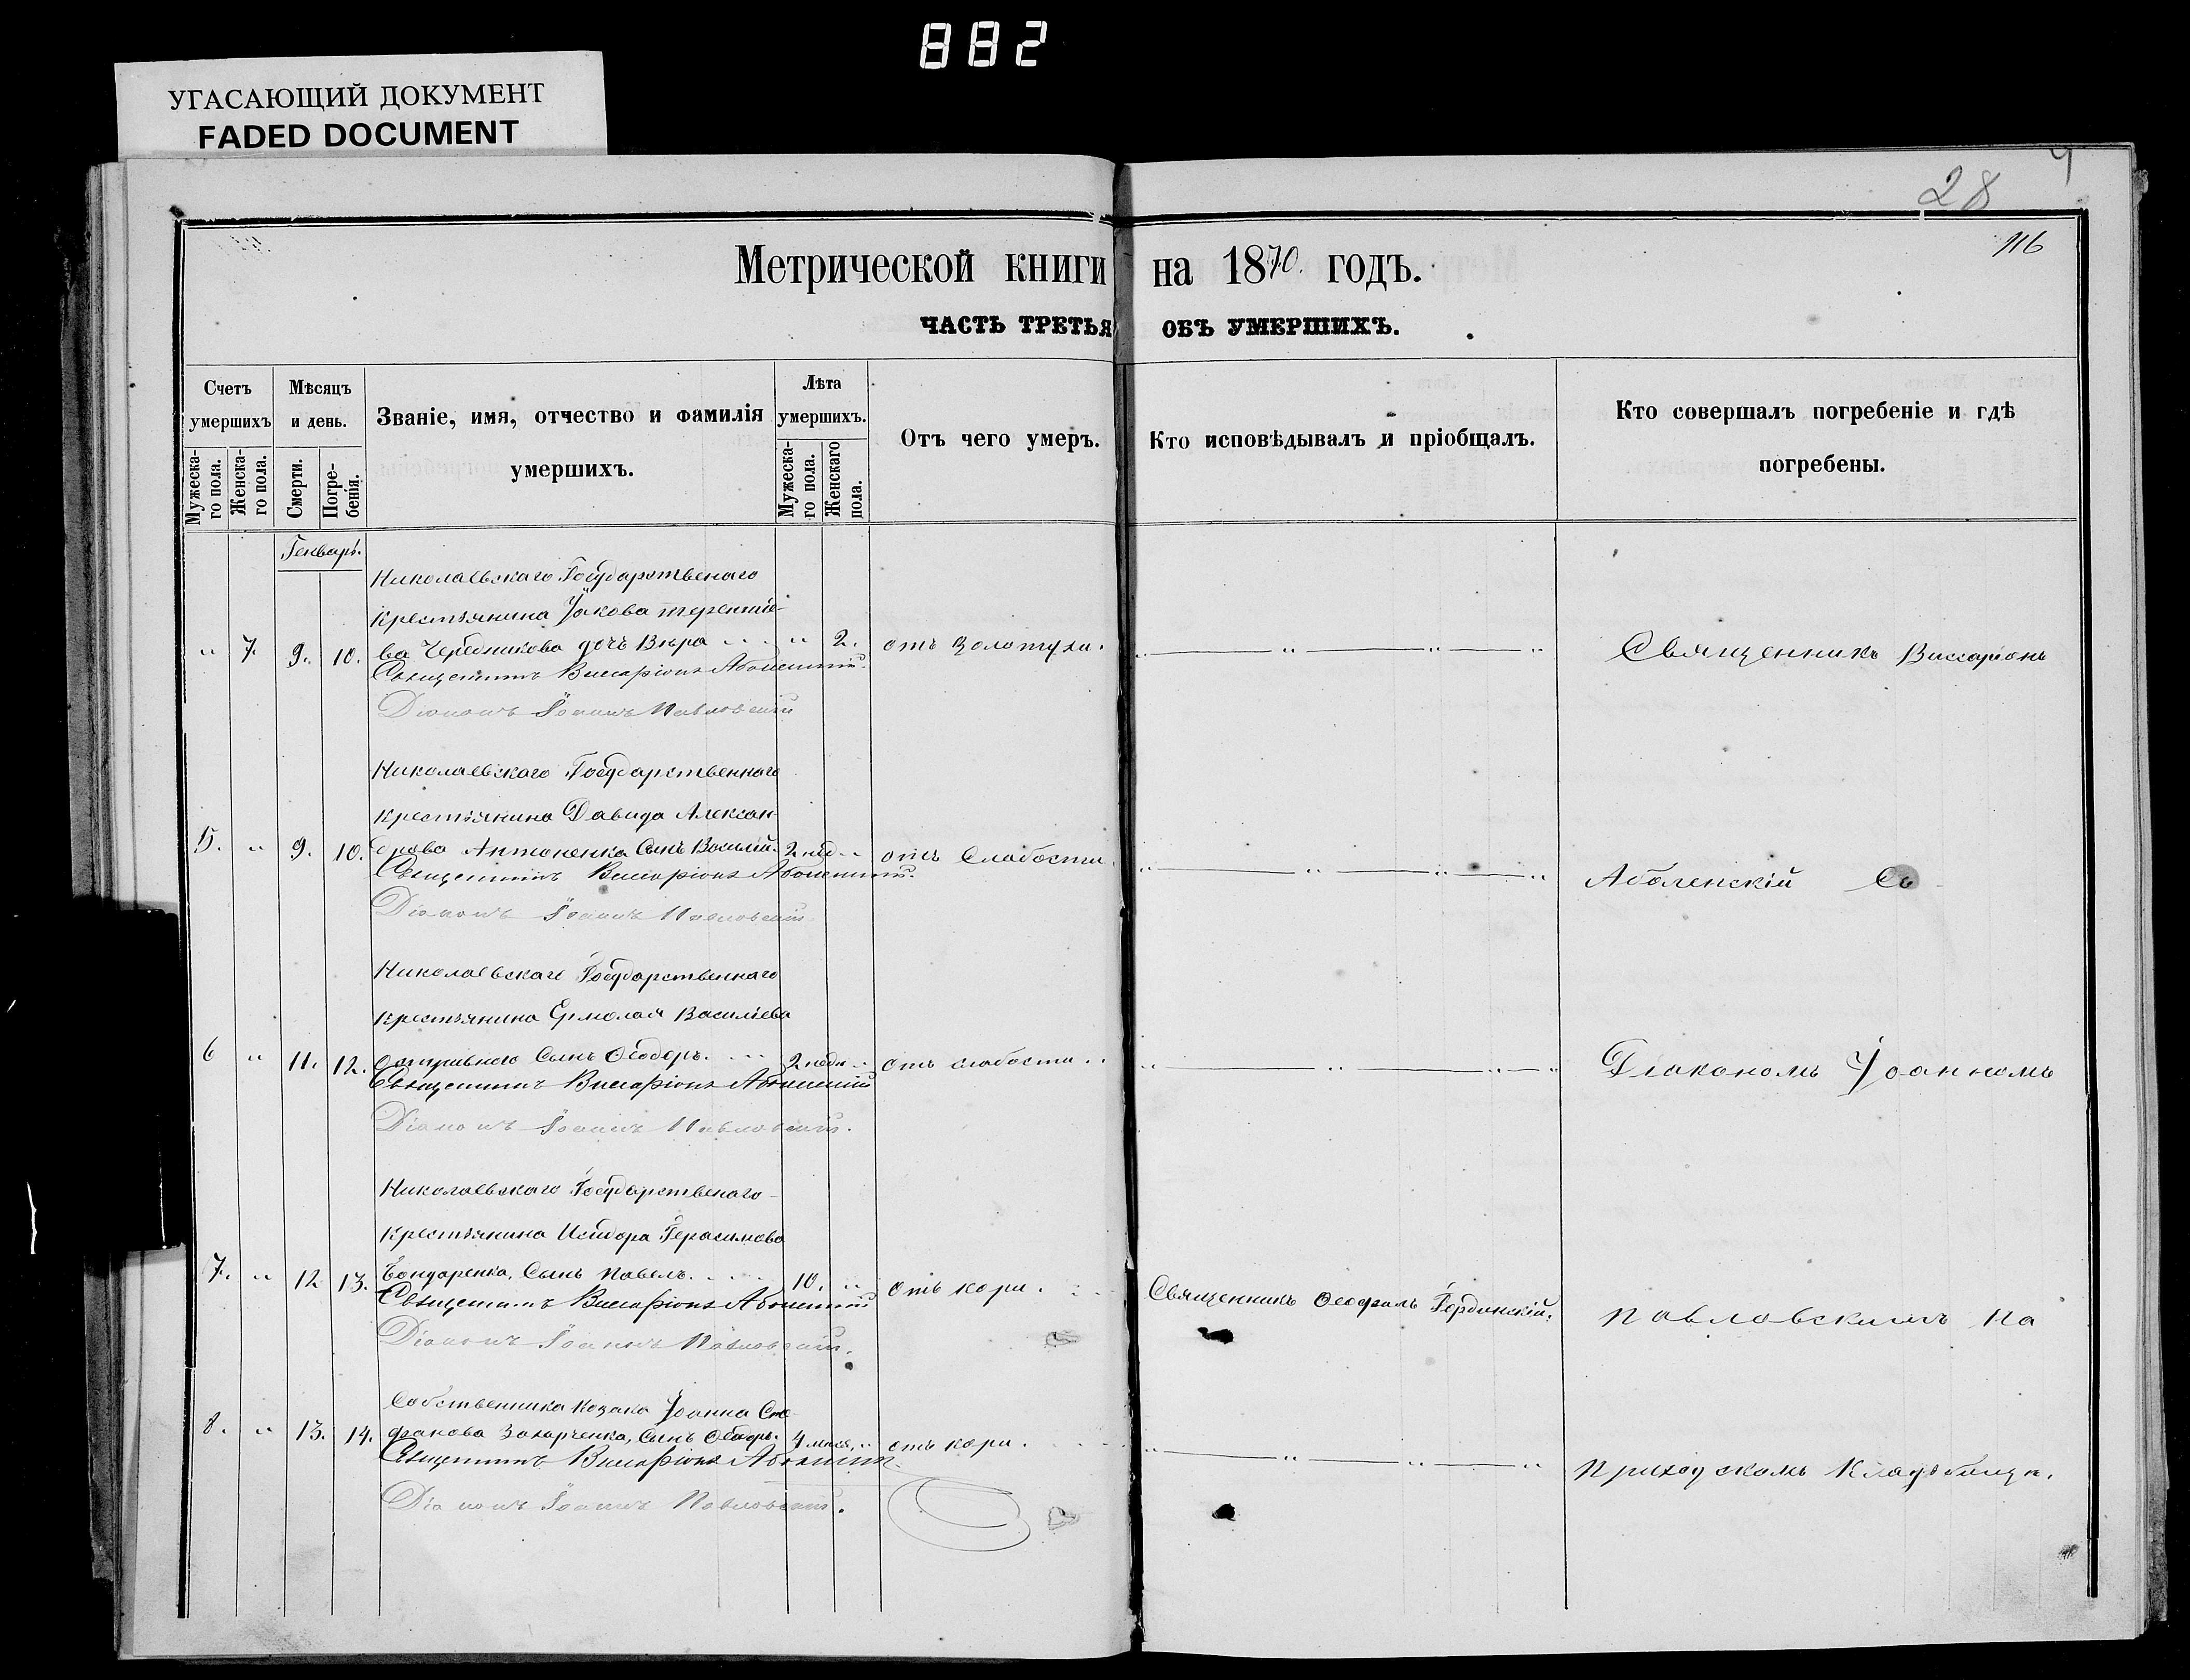 882
УГАСАЮЩИЙ ДОКУМЕНТ
FADED DOCUMENT
4
28
116
Метрической книги на 1870. годъ.
ЧАСТЬ ТРЕТЬЯ ОБЪ УМЕРШИХЪ.
Счетъ умершихъ
Мужеска-го пола.
Женска-го пола.
Мѣсяцъ и день.
Смерти.
Погре-бенія.
Званіе, имя, отчество и фамилія умершихъ.
Лѣта умершихъ.
Мужеска-го пола.
Женскаго пола.
Отъ чего умеръ.
Кто исповѣдывалъ и пріобщалъ.
Кто совершалъ погребеніе и гдѣ погребены.
Генварь.
Николаевскаго Государственаго
крестьянина Іакова терентіе-
" 7. 9. 10. ва Чередникова дочь Вѣра " 2. отъ Золотухи. " " "
Священникъ Виссаріонъ Аболенскій
Діаконъ Іоаннъ Павловскій
Священникъ Виссаріонъ
Николаевскаго Государственнаго
крестьянина Давида Алексан-
5. " 9. 10. дрова Антоненка Сынъ Василій. 2 нед. " отъ Слабости. " " " "
Священникъ Виссаріонъ Аболенскій.
Діаконъ Іоаннъ Павловскій
Аболенскій Съ
Николаевскаго Государственнаго
крестьянина Ермолая Василіева
6 " 11. 12. Сынъ Ѳеодоръ. 2 неде. " отъ слабости. " " " "
Священникъ Виссаріонъ Аболенскій
Діаконъ Іоаннъ Павловскій.
Діакономъ Іоанномъ
Николаевскаго Государственаго
крестьянина Исидора Герасимова
7. " 12 13. Бондаренка, Сынъ Павелъ. 10. " отъ кори. Священникъ
Священникъ Виссаріонъ Аболенскій
Діаконъ Іоаннъ Павловскій.
Павловскимъ На
Собственника козака Іоанна Сте-
8. " 13. 14. фанова Захарченка, Сынъ Ѳеодоръ. 4 мѣся. " отъ кори. " " " "
Священникъ Виссаріонъ Аболенскій
Діаконъ Іоаннъ Павловскій.
Приходскомъ Кладбищѣ.